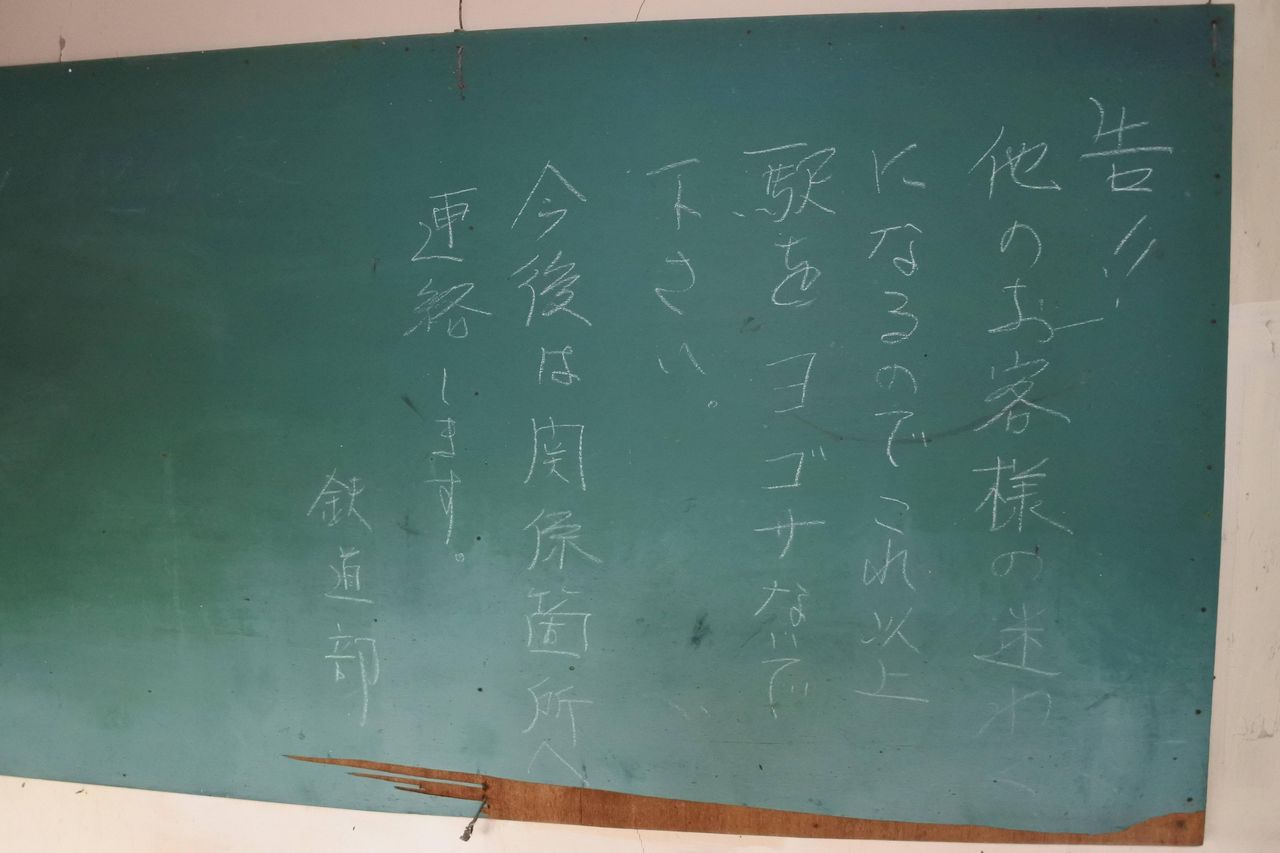 告!!
他のお客様の迷わく
になるのでこれ以上
駅をヨゴサないで
下さい。
今後は関係箇所へ
連絡します。
鉄道部